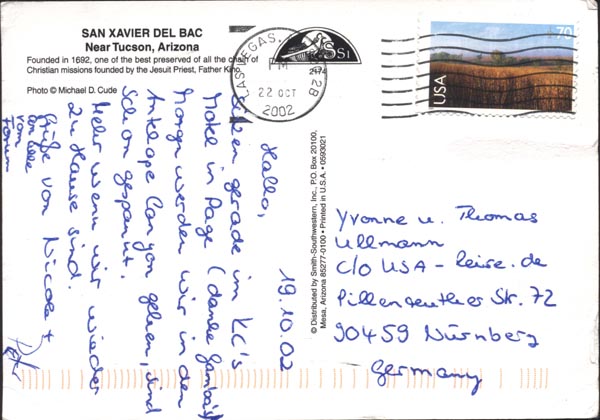 SAN XAVIER DEL BAC
Near Tucson, Arizona
Founded in 1692, one of the best preserved of all the chain of
Christian missions founded by the Jesuit Priest, Father Kino.
Photo © Michael D. Cude
LAS VEGAS,
PM
22 OCT
2002
70
USA
© Distributed by Smith-Southwestern, Inc., P.O. Box 20100,
Mesa, Arizona 85277-0100 • Printed in U.S.A. • 0593021
19.10.02
Hallo,
sitzen gerade im KC's
Motel in Page (danke Gambas!)
Morgen werden wir in den
Antelope Canyon gehen, sind
schon gespannt.
Mehr wenn wir wieder
zu Hause sind.
Grüße von Nicole +
Peter
an alle
vom
Forum
Yvonne u. Thomas
Ullmann
c/o USA-Reise.de
Pillenreuther Str. 72
90459 Nürnberg
Germany